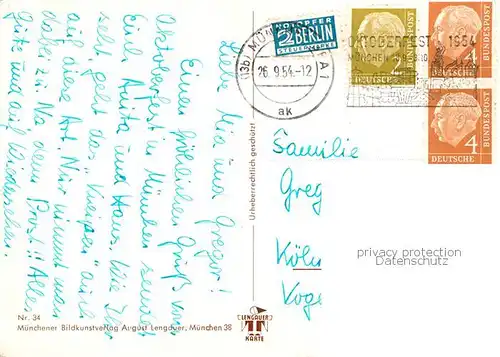 Liebe Mia und Gregor!
Einen fröhlichen Gruß vom
Oktoberfest in München sendet
Euch Anita und Hans. Wie Ihr
seht geht das "Knipsen" auch
auf diese Art. Nur nimmt man
dabei zu. Na denn Prost!! Alles
Gute und auf Wiedersehen.
Nr. 34
Münchener Bildkunstverlag August Lengauer, München 38
Urheberrechtlich geschützt
LENGAUER
KARTE
NOTOPFER
2 BERLIN
STEUERMARKE
(13b) MÜN
26.9.54.-12
ak
OKTOBERFEST 1954
MÜNCHEN
2
DEUTSCHE
BUNDESPOST
4
DEUTSCHE
BUNDESPOST
4
DEUTSCHE
BUNDESPOST
Familie
Greg
Köln
Voge
privacy protection
Datenschutz